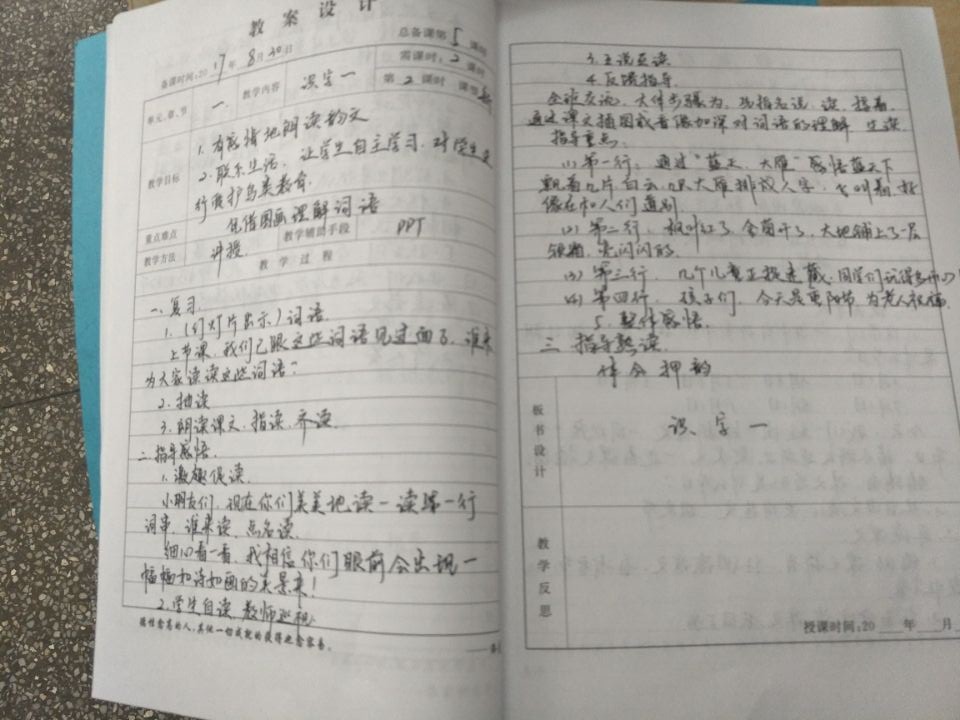 教案设计
备课时间:2017年8月30日
总备课第5课时
需课时:2课时
单元、章、节 一、 教学内容 识字一 第2课时 课型
教学目标
1.有感情地朗读韵文
2.联系生活,让学生自主学习,对学生进
行爱护鸟类教育。
重点难点 凭借图画理解词语
教学方法 讲授 教学辅助手段 PPT
教学过程
一.复习.
1.(幻灯片出示)词语.
上节课,我们已跟这些词语见过面了,谁来
为大家读读这些词语?
2.抽读
3.朗读课文、指读、齐读.
二.指导感悟.
1.激趣促读.
小朋友们,现在你们美美地读一读第一行
词串,谁来读,点名读.
细心看一看,我相信你们眼前会出现一
幅幅如诗如画的美景来!
2.学生自读,教师巡视
3.互说互读.
4.反馈指导.
全班交流,大体步骤为:先指名说,读,接着,
通过课文插图或者加深对词语的理解
指导重点.
(1)第一行:通过"蓝天、大雁"感悟蓝天下
飘着几片白云,几只大雁排成人字,
像在和人们道别.
(2)第二行,枫叶红了,金菊开了,大地铺上了一层
闪闪的.
(3)第三行,几个儿童正捉迷藏,同学们玩得多开心
(4)第四行,孩子们,今天是重阳节,为老人祝福.
5.整体感悟.
三.指导熟读.
体会押韵
板书设计 识字一
教学反思
授课时间:20 年 月